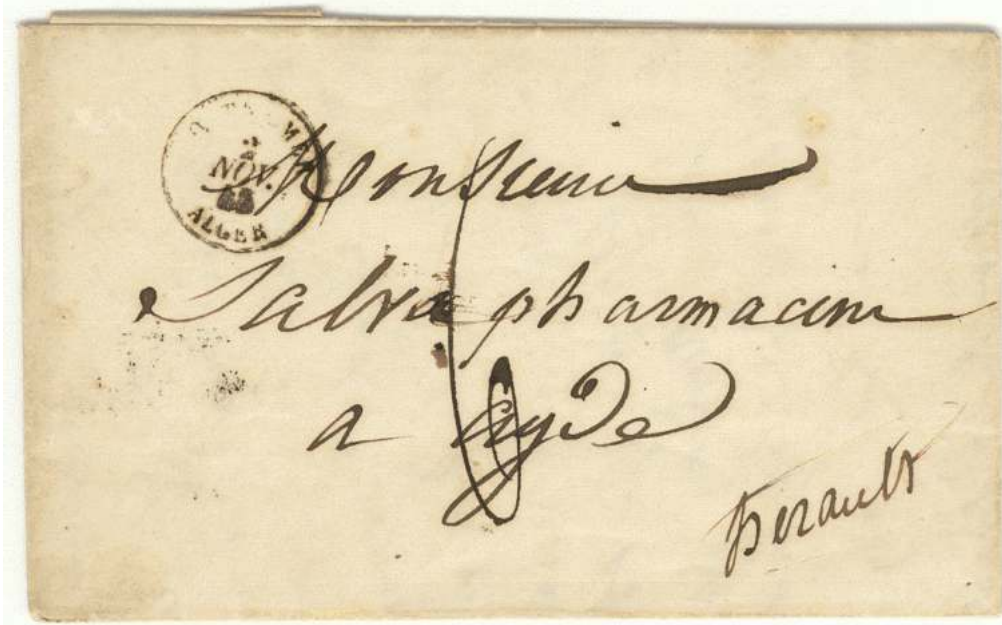 2
NOV.
ALGER
Monsieur
Salva pharmacien
a Agde
herault